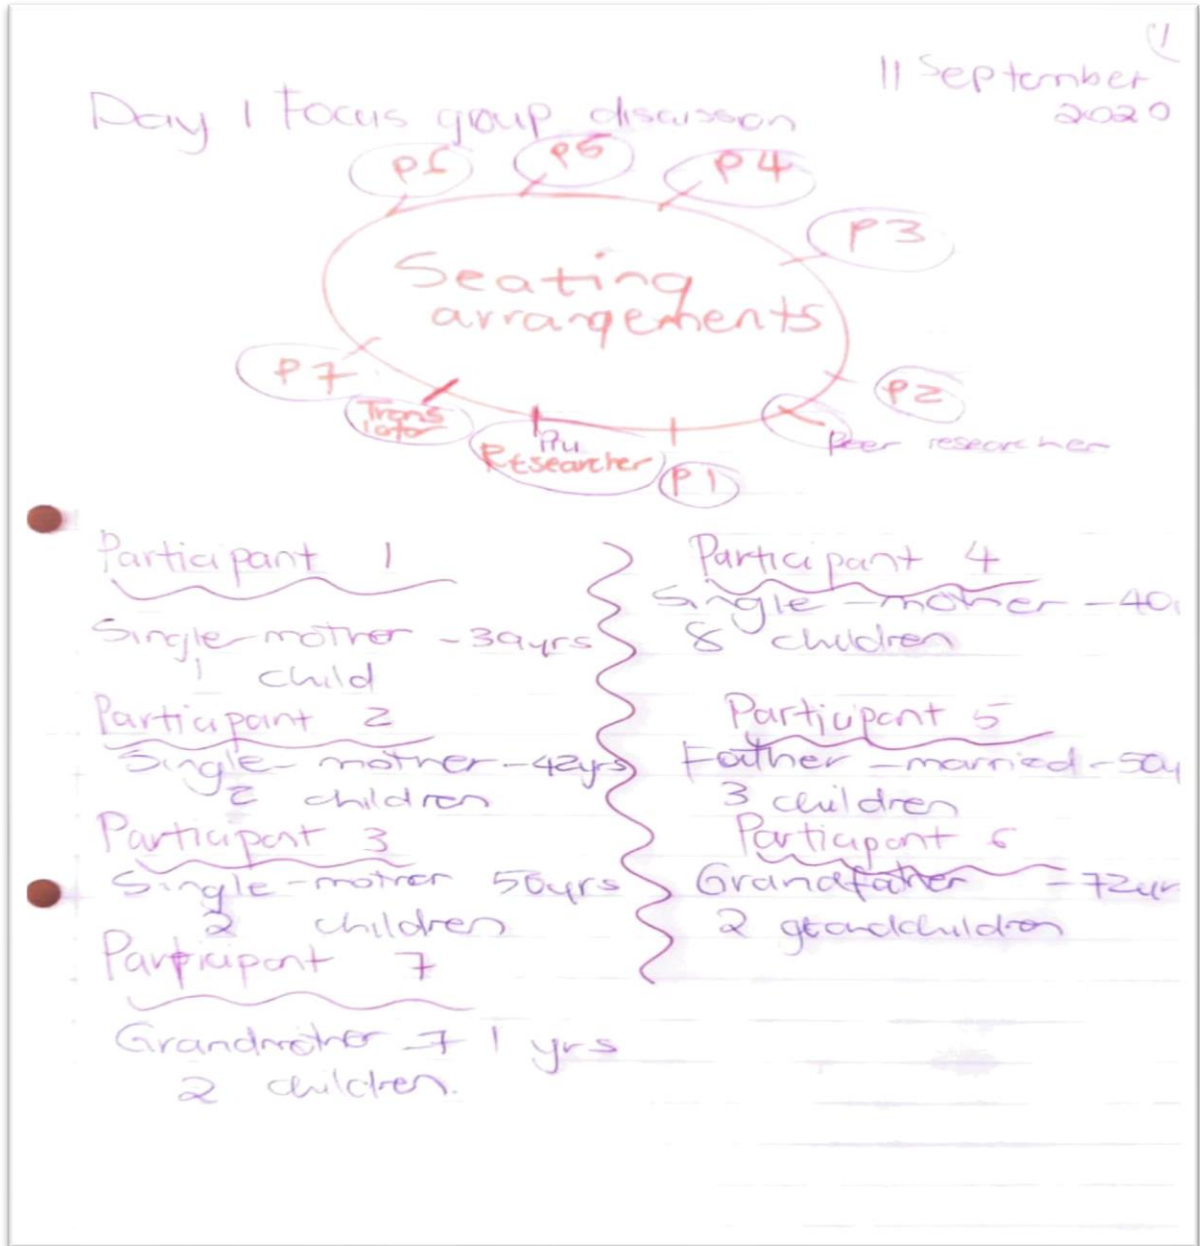 11 September
2020
Day 1 Focus group discussion
P6
P5
P4
P3
Seating
arrangements
P7
P2
Trans
lator
Pru
Researcher
P1
Peer researcher
Participant 1
Single mother - 39yrs
1 child
Participant 2
Single - mother - 42yrs
2 children
Participant 3
Single - mother 56yrs
2 children
Participant 7
Grandmother - 71 yrs
2 children.
Participant 4
Single - mother - 40
8 children
Participant 5
Father - married - 50y
3 children
Participant 6
Grandfather - 72yr
2 grandchildren